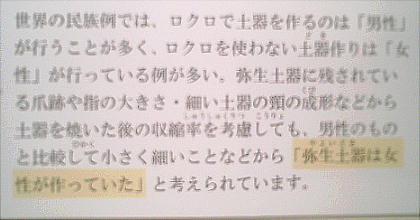 世界の民族例では、ロクロで土器を作るのは「男性」
が行うことが多く、ロクロを使わない土器作りは「女
性」が行っている例が多い。弥生土器に残されてい
る爪跡や指の大きさ・細い土器の頸の成形などから
土器を焼いた後の収縮率を考慮しても、男性のもの
と比較して小さく細いことなどから「弥生土器は女
性が作っていた」と考えられています。